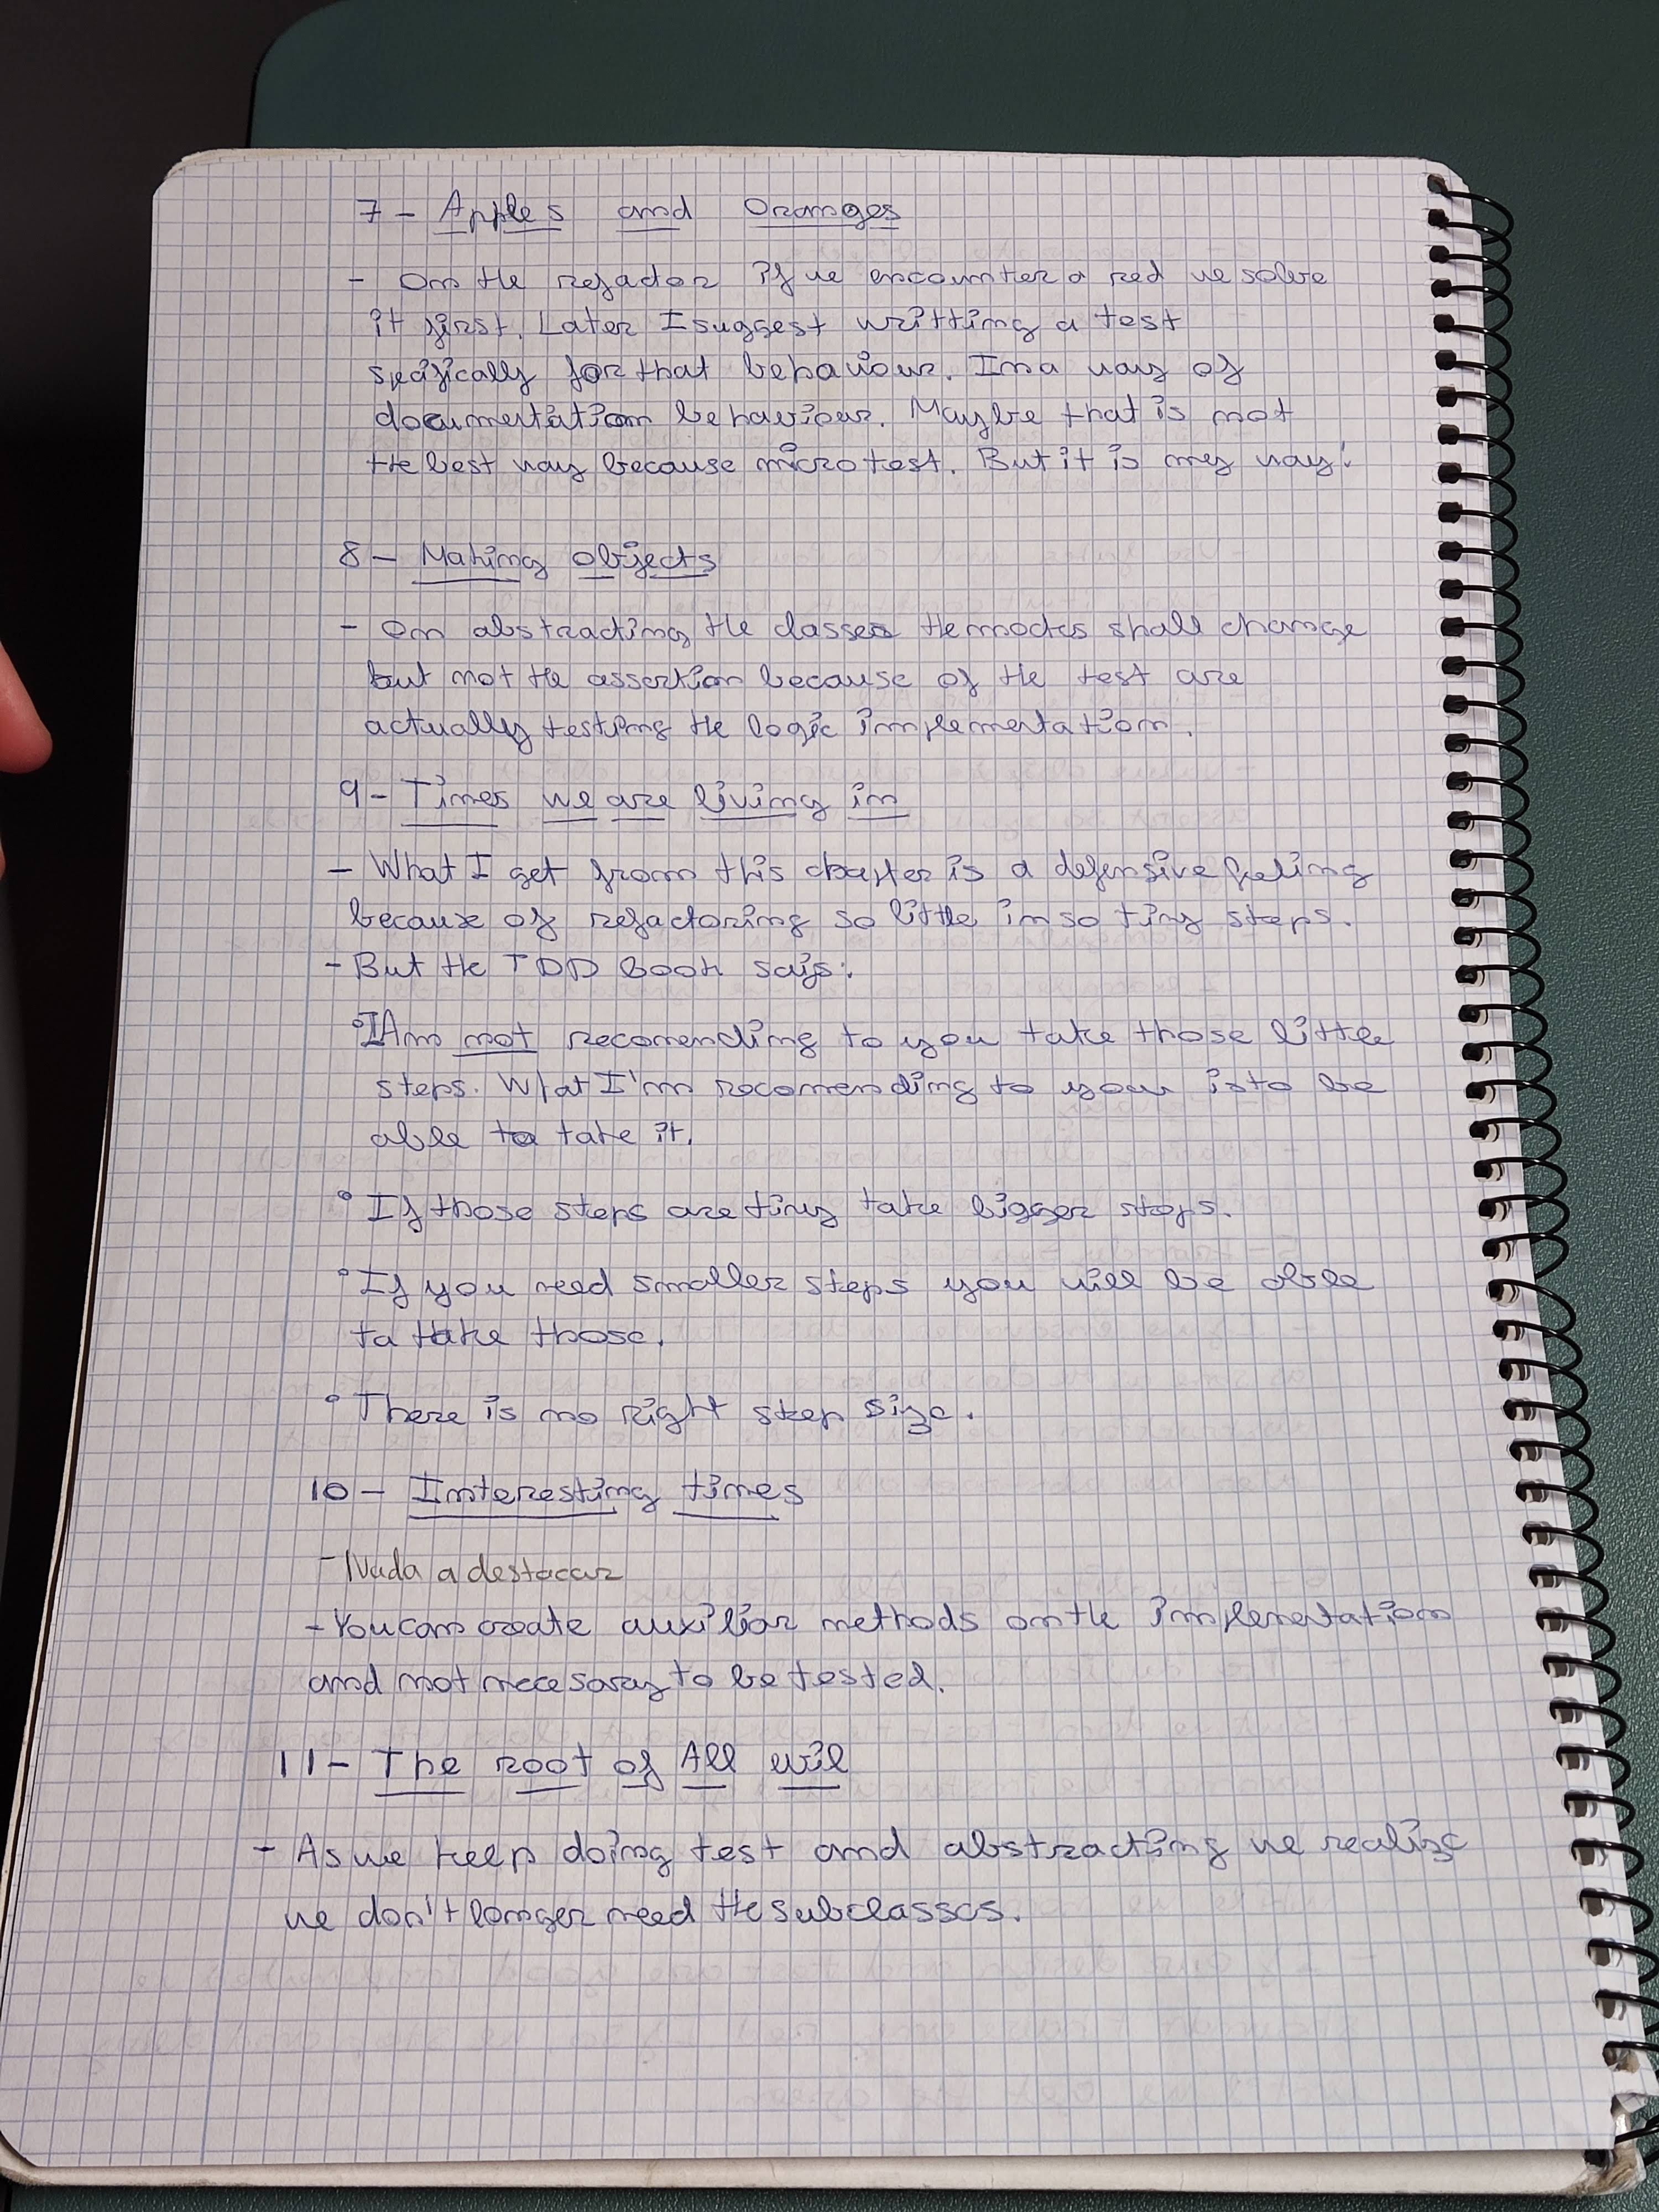 7 - Apples and Oranges
- On the refactor if we encounter a red we solve
it first. Later I suggest writting a test
specifically for that behaviour. In a way of
documentation behaviour. Maybe that is not
the best way because micro test. But it is my way!
8 - Making objects
- On abstracting the classes the modes shall change
but not the assertion because of the test are
actually testing the logic implementation.
9 - Times we are living in
- What I get from this chapter is a defensive feeling
because of refactoring so little in so tiny steps.
- But the TDD Book says:
° I Am not recomending to you take those little
steps. What I'm recomending to you is to be
able to take it.
° If those steps are tiny take bigger steps.
° If you need smaller steps you will be able
to take those.
° There is no right step size.
10 - Interesting times
- Nada a destacar
- You can create auxiliar methods on the implementation
and not necesary to be tested.
11 - The root of All evil
- As we keep doing test and abstracting we realize
we don't longer need the subclasses.